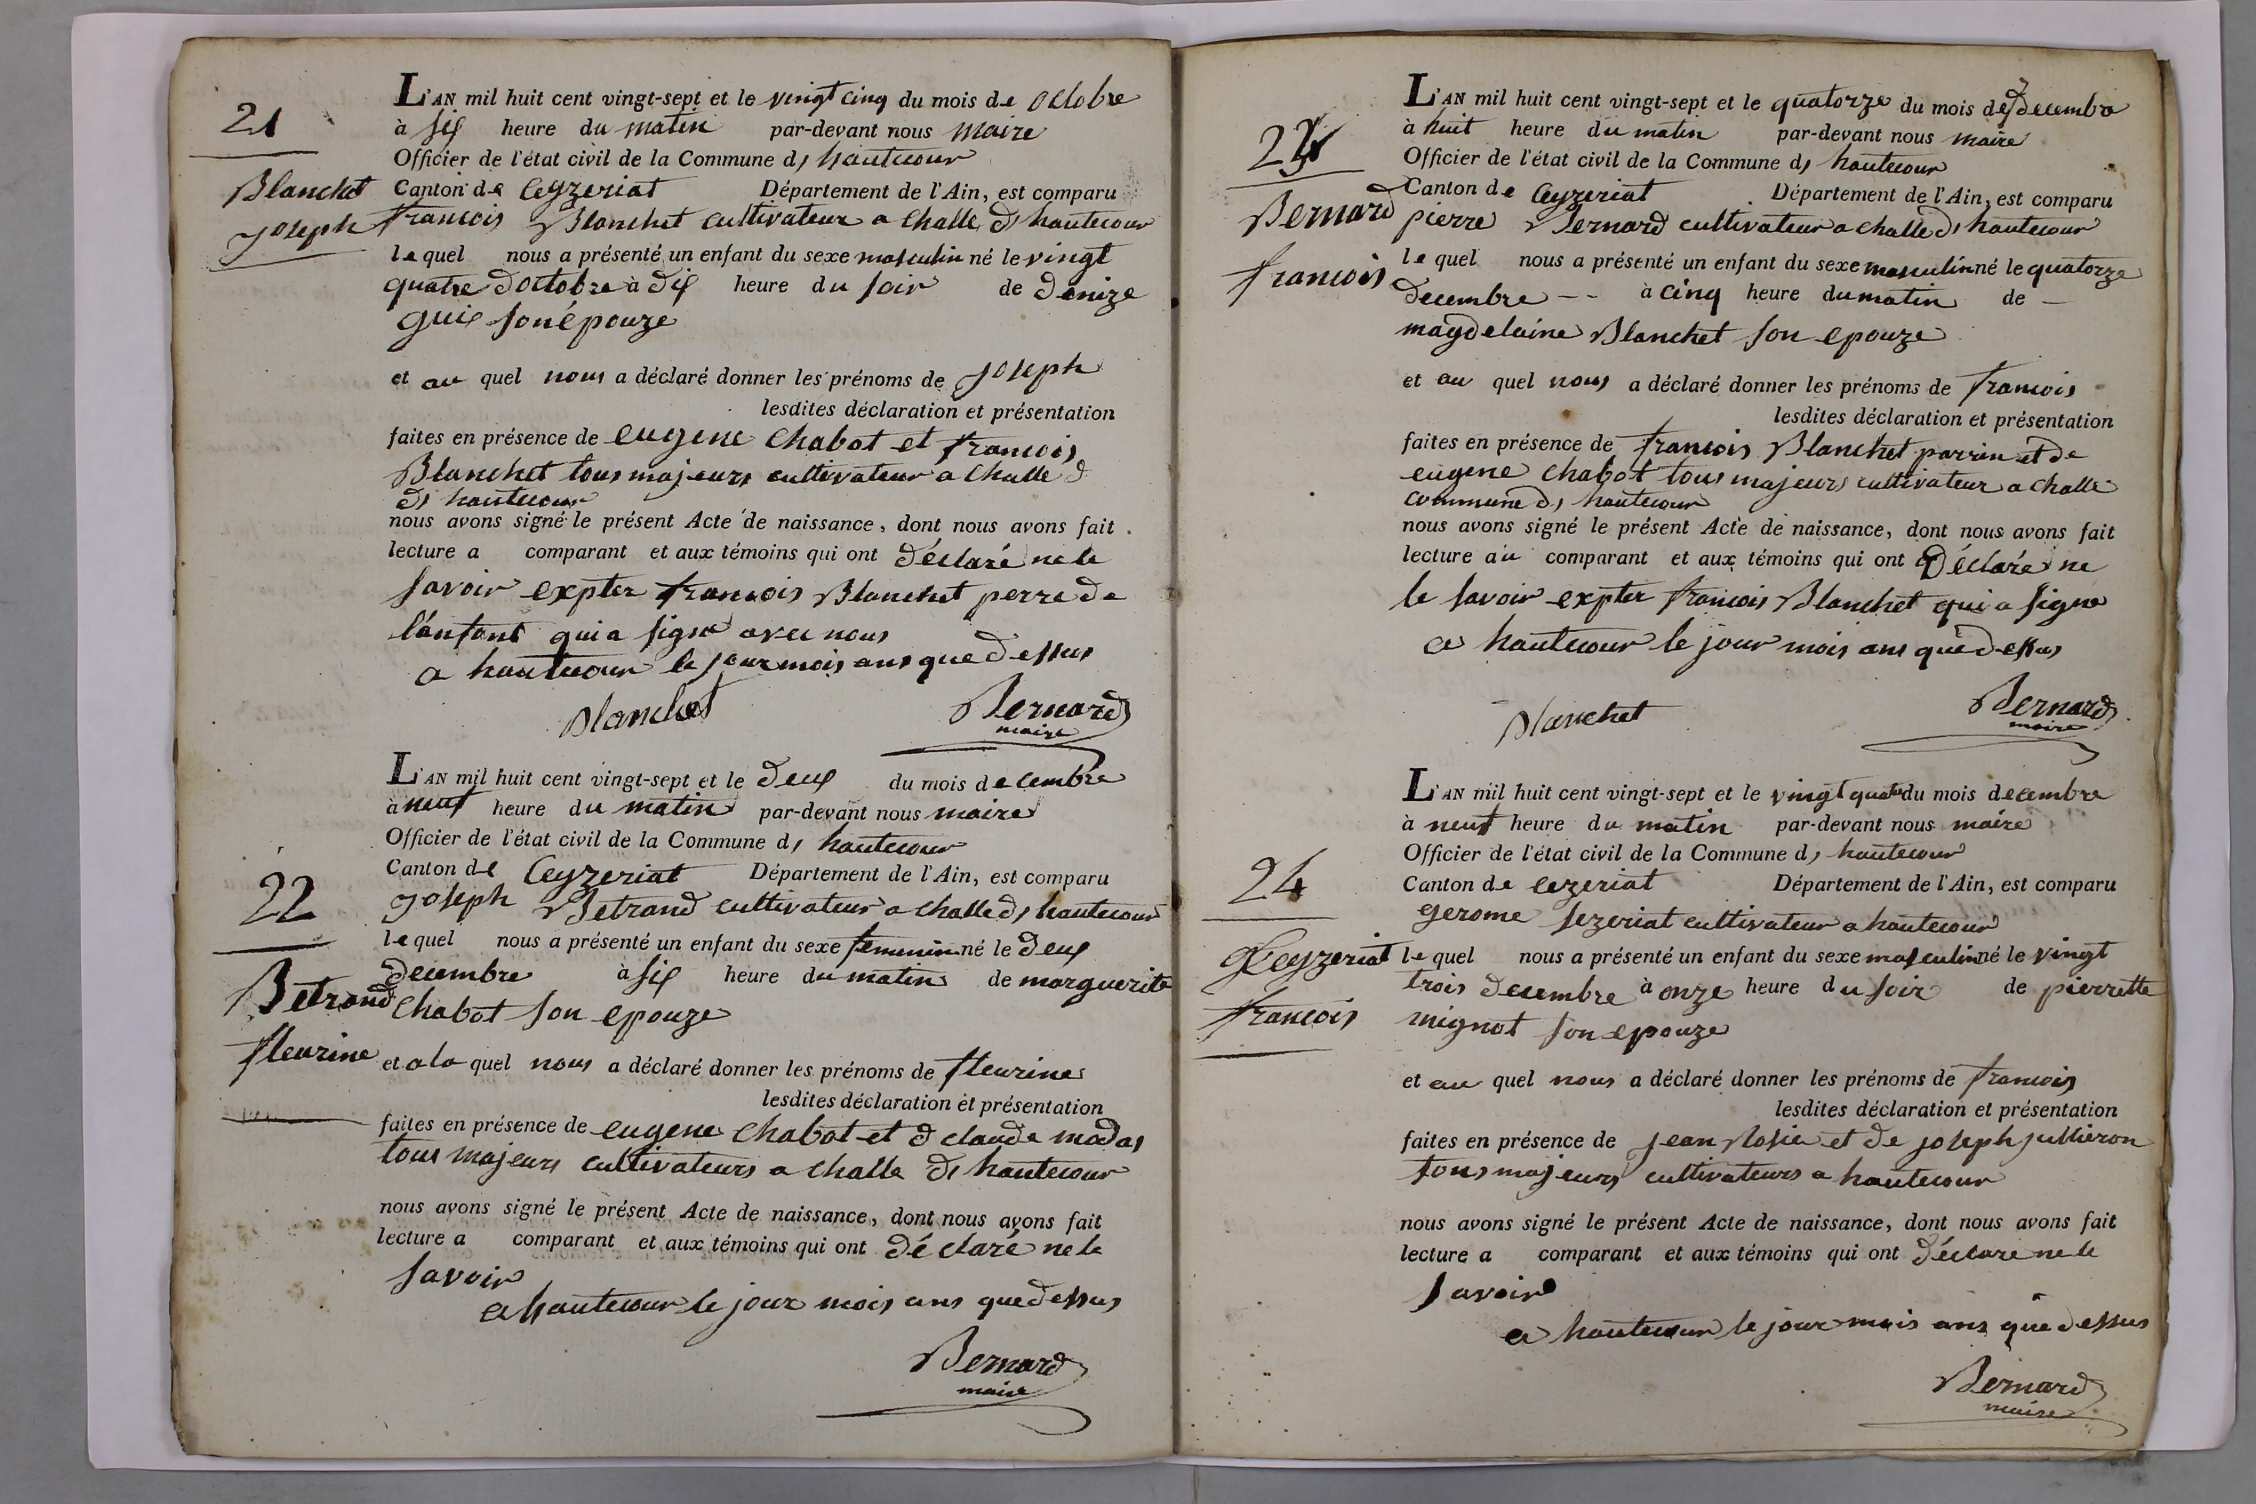 21
Blanchet
joseph
L'AN mil huit cent vingt-sept et le vingt cinq du mois de octobre
à six heure du matin par-devant nous maire
Officier de l'état civil de la Commune de hautecour
Canton de Ceyzeriat Département de l'Ain, est comparu
francois Blanchet cultivateur a challe de hautecour
le quel nous a présenté un enfant du sexe masculin né le vingt
quatre doctobre à dix heure du soir de denize
guix son épouze
et au quel nous a déclaré donner les prénoms de joseph
lesdites déclaration et présentation
faites en présence de eugene chabot et francois
Blanchet tous majeurs cultivateur a challe d
de hautecour
nous avons signé le présent Acte de naissance, dont nous avons fait
lecture a comparant et aux témoins qui ont déclaré ne le
savoir expter francois Blanchet perre de
l'anfant qui a signe avec nous
a hautecour le jour mois ans que dessus
Blanchet Bernard
maire
22
Betrand
fleurine
L'AN mil huit cent vingt-sept et le deux du mois decembre
à neuf heure du matin par-devant nous maire
Officier de l'état civil de la Commune de hautecour
Canton de Ceyzeriat Département de l'Ain, est comparu
joseph Betrand cultivateur a challe de hautecour
le quel nous a présenté un enfant du sexe feminin né le deux
decembre à six heure du matin de marguerite
chabot son epouze
et a la quel nous a déclaré donner les prénoms de fleurine
lesdites déclaration et présentation
faites en présence de eugene chabot et d claude modas
tous majeurs cultivateurs a challe de hautecour
nous avons signé le présent Acte de naissance, dont nous avons fait
lecture a comparant et aux témoins qui ont déclaré ne le
savoir
a hautecour le jour mois ans que dessus
Bernard
maire
23
Bernard
francois
L'AN mil huit cent vingt-sept et le quatorze du mois de decembre
à huit heure du matin par-devant nous maire
Officier de l'état civil de la Commune de hautecour
Canton de Ceyzeriat Département de l'Ain, est comparu
pierre Bernard cultivateur a challe de hautecour
le quel nous a présenté un enfant du sexe masculin né le quatorze
decembre -- à cinq heure du matin de -
magdelaine Blanchet son epouze
et au quel nous a déclaré donner les prénoms de francois
lesdites déclaration et présentation
faites en présence de francois Blanchet parrin et de
eugene chabot tous majeurs cultivateur a challe
commune de hautecour
nous avons signé le présent Acte de naissance, dont nous avons fait
lecture au comparant et aux témoins qui ont Déclaré ne
le savoir expter francois Blanchet qui a signe
a hautecour le jour mois ans que dessus
Blanchet Bernard
maire
24
Ceyzeriat
francois
L'AN mil huit cent vingt-sept et le vingt quatre du mois decembre
à neuf heure du matin par-devant nous maire
Officier de l'état civil de la Commune de hautecour
Canton de cezeriat Département de l'Ain, est comparu
gerome sezeriat cultivateur a hautecour
le quel nous a présenté un enfant du sexe masculin né le vingt
trois decembre à onze heure du soir de pierrette
mignot son epouze
et au quel nous a déclaré donner les prénoms de francois
lesdites déclaration et présentation
faites en présence de jean et de joseph jullieron
tous majeurs cultivateurs a hautecour
nous avons signé le présent Acte de naissance, dont nous avons fait
lecture a comparant et aux témoins qui ont déclare ne le
savoir
a hautecour le jour mois ans que dessus
Bernard
maire